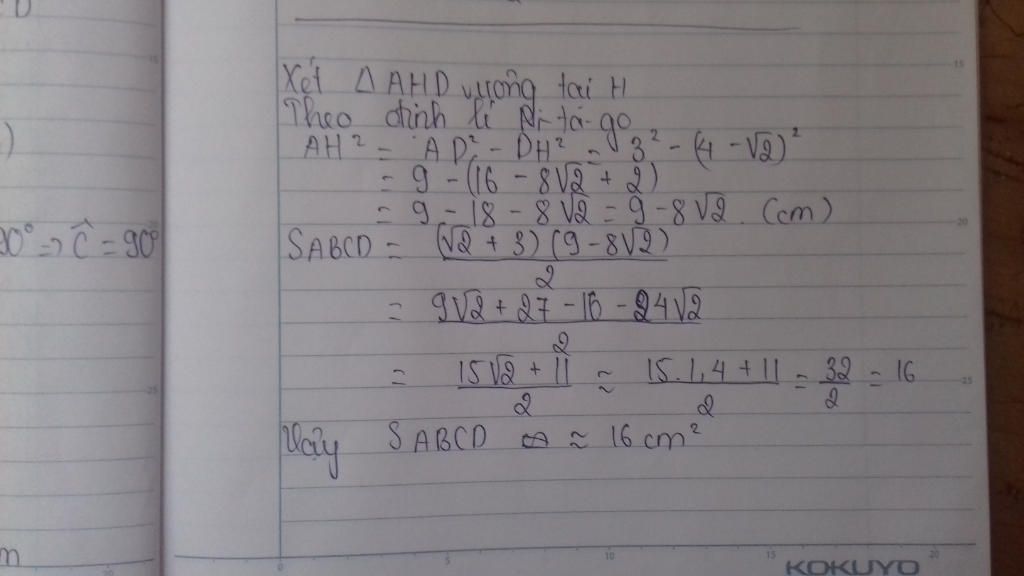 Xét Δ AHD vuông tại H
Theo định lí Pi-ta-go
AH² = AD² - DH² = 3² - (4 - √2)²
= 9 - (16 - 8√2 + 2)
= 9 - 18 - 8√2 = 9 - 8√2. (cm)
90° => Ĉ = 90°
SABCD = (√2 + 3)(9 - 8√2) / 2
= 9√2 + 27 - 16 - 24√2 / 2
= 15√2 + 11 / 2 ≈ 15.1,4 + 11 / 2 = 32 / 2 = 16
Vậy SABCD ≈ 16 cm²
KOKUYO